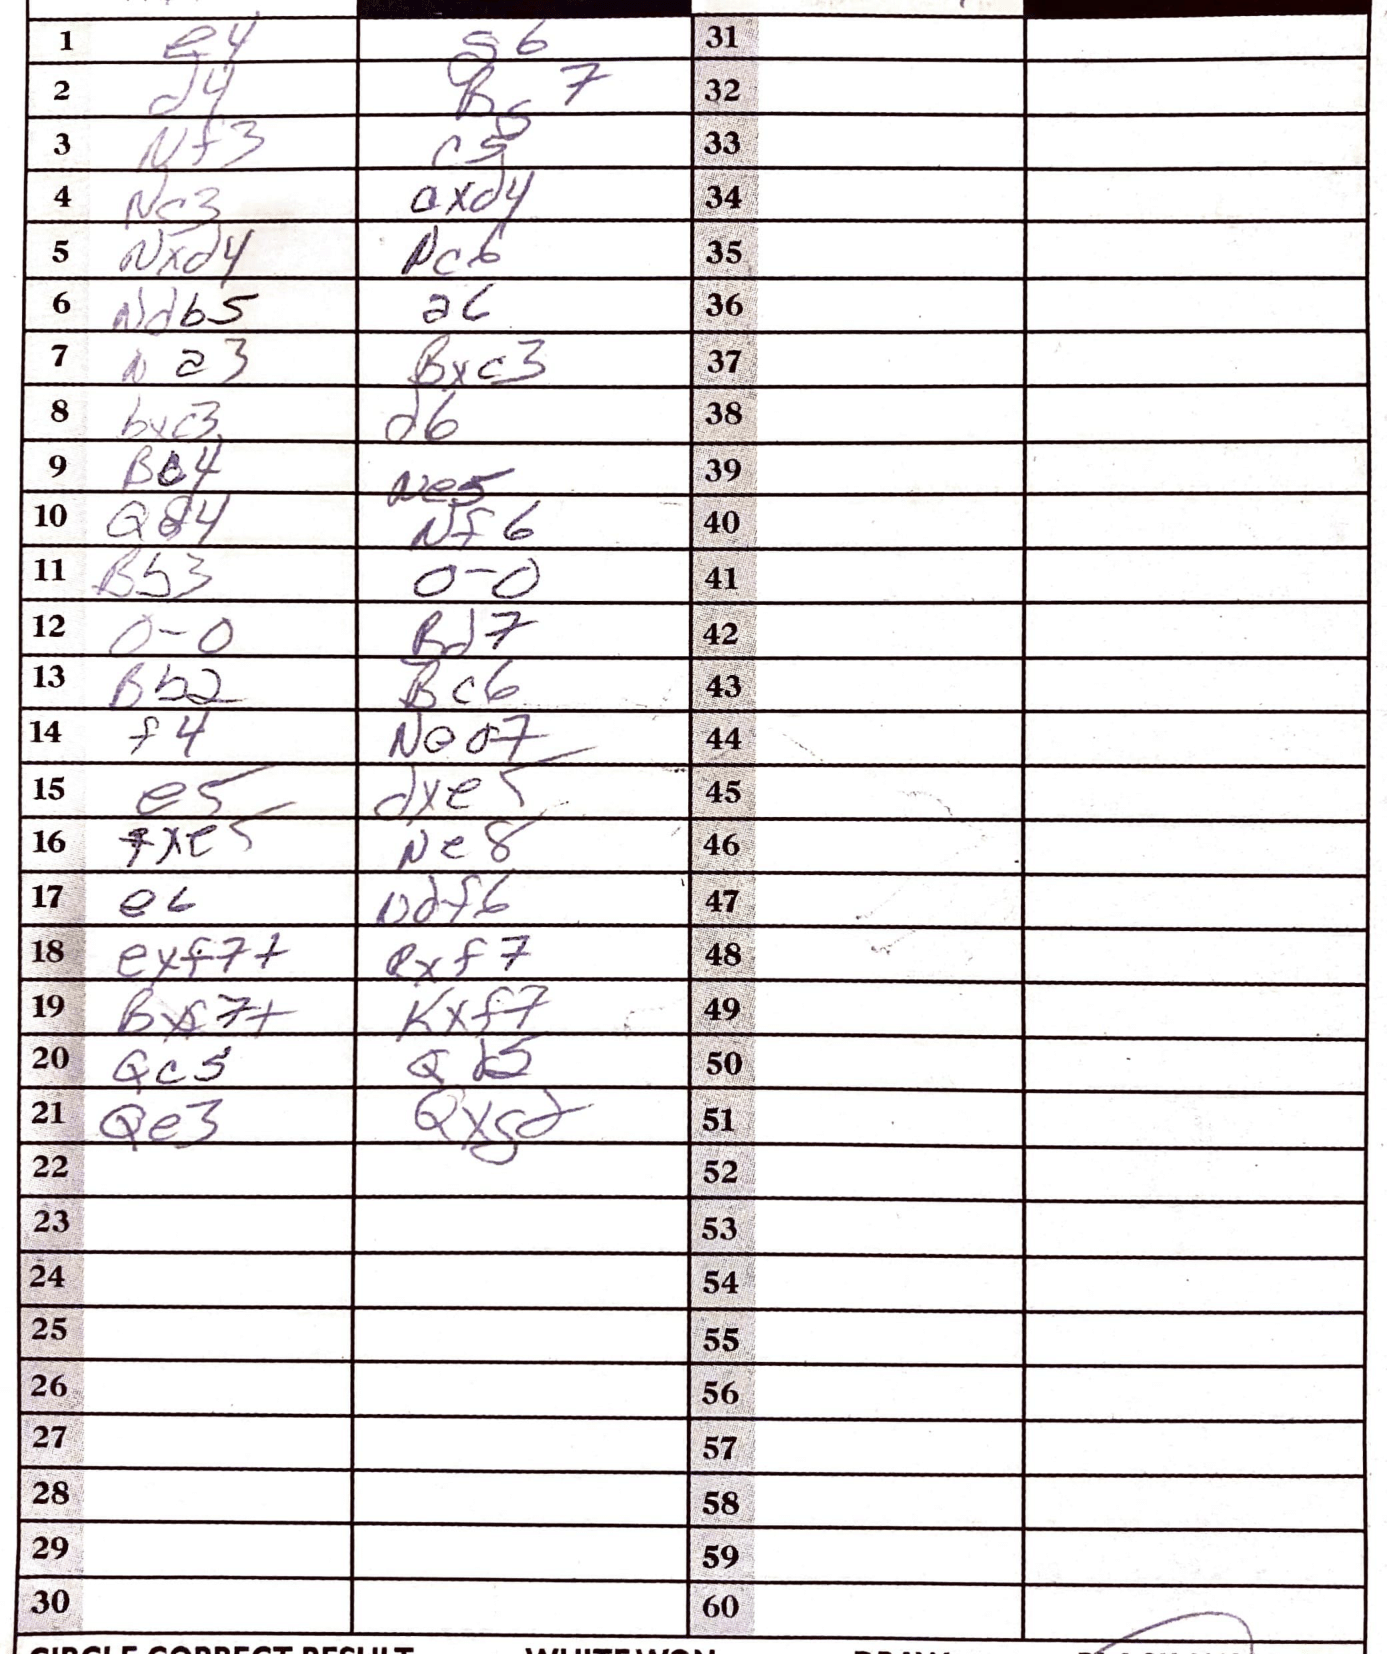 1 e4 g6 31
2 d4 Bg7 32
3 Nf3 c5 33
4 Nc3 cxd4 34
5 Nxd4 Nc6 35
6 Ndb5 a6 36
7 Na3 Bxc3 37
8 bxc3 d6 38
9 Bc4 Ne5 39
10 Qd4 Nf6 40
11 Bb3 O-O 41
12 O-O Bd7 42
13 Bb2 Bc6 43
14 f4 Ned7 44
15 e5 dxe5 45
16 fxe5 Ne8 46
17 e6 Ndf6 47
18 exf7+ Rxf7 48
19 Bxf7+ Kxf7 49
20 Qc5 Qd5 50
21 Qe3 Qxg2 51
22 52
23 53
24 54
25 55
26 56
27 57
28 58
29 59
30 60
CIRCLE CORRECT RESULT WHITE WON DRAW